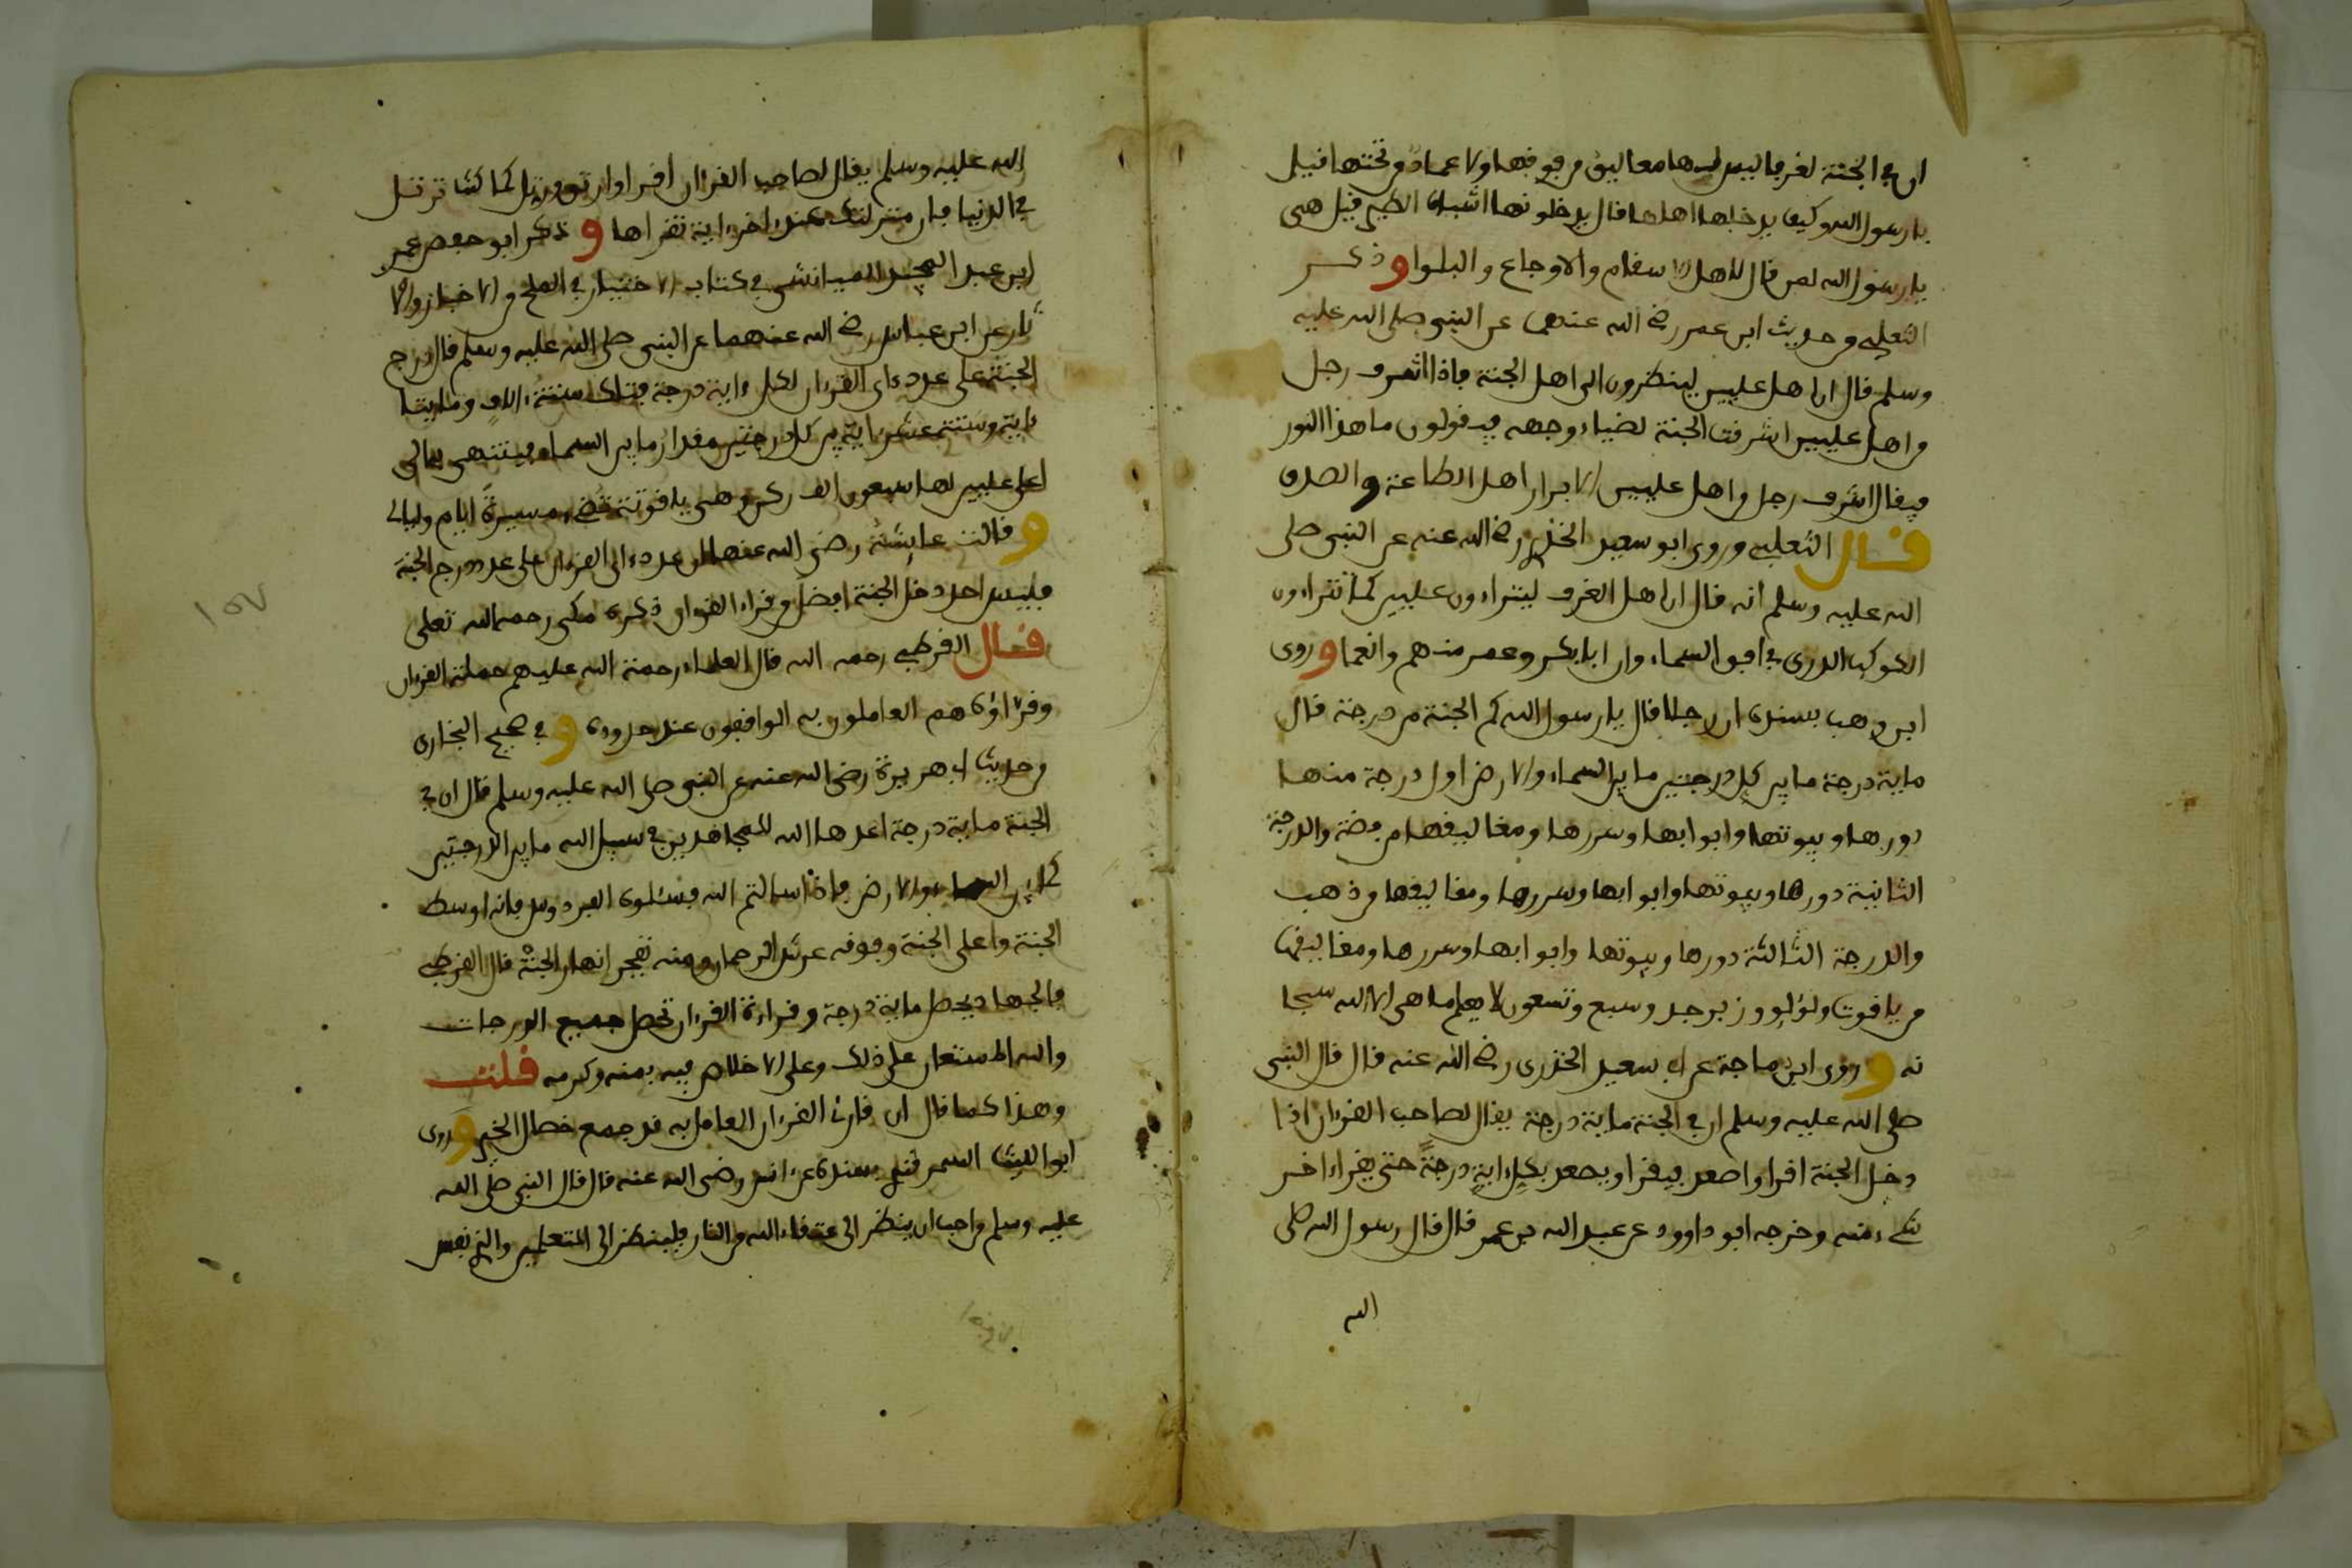 ان في الجنة لغرفا ليس لها معاليق من فوفها ولا عماد من تحتها فيل
يا رسول الله وكيف يدخلها اهلها فال يدخلونها اشباه الطير فيل هي
يا رسول الله لمن فال لاهل الاسفام والاوجاع والبلوا وذكر
الثعلبي من حديث ابن عمر رضي الله عنهما عن النبي صلى الله عليه
وسلم فال ان اهل عليين لينظرون الى اهل الجنة فاذا اشرف رجل
من اهل عليين اشرفت الجنة لضياء وجهه فيفولون ما هذا النور
فيفال اشرف رجل من اهل عليين الابرار اهل الطاعة والصدق
فال الثعلبي وروى ابو سعيد الخذري رضي الله عنه عن النبي صلى
الله عليه وسلم انه فال ان اهل الغرف ليتراءون عليين كما تتراءون
الكوكب الدري في افق السماء وان ابا بكر وعمر منهم وانعما وروى
ابن وهب بسنده ان رجلا فال يا رسول الله كم الجنة من درجة فال
ماية درجة ما بين كل درجتين ما بين السماء والارض اول درجة منها
دورها وبيوتها وابوابها وسررها ومغاليفها من فضة والدرجة
الثانية دورها وبيوتها وابوابها وسررها ومغاليفها من ذهب
والدرجة الثالثة دورها وبيوتها وابوابها وسررها ومغاليفها
من يافوت ولؤلؤ وزبرجد وسبع وتسعون لا يعلم ما هي الا الله سبحا
نه وروى ابن ماجة عن ابي سعيد الخذري رضي الله عنه فال فال النبي
صلى الله عليه وسلم ان في الجنة ماية درجة يفال لصاحب الفرءان اذا
دخل الجنة افرا واصعد فيفرا ويصعد بكل ءاية درجة حتى يفراء اخر
شيء منه وخرجه ابو داوود عن عبد الله بن عمر فال فال رسول الله صلى
الله
الله عليه وسلم يفال لصاحب الفرءان افرا وارتق ورتل كما كنت ترتل
في الدنيا فان منزلتك عند اخر ءاية تفراها وذكر ابو حفص عمر
ابن عبد المجيد الميانشي في كتاب الاختيار في الملح من الاخبار والا
ثار عن ابن عباس رضي الله عنهما عن النبي صلى الله عليه وسلم فال درج
الجنة على عدد ءاي الفرءان لكل ءاية درجة فتلك ستة ءالاف ومايتا
ءاية وستة عشر ءاية بين كل درجتين مفدار ما بين السماء فينتهي به الى
اعلى عليين لها سبعون الف ركن وهي يافوتة تضيء مسيرة ايام وليالي
وفالت عايشة رضي الله عنها ان عدد ءاي الفرءان على عدد درج الجنة
فليس احد دخل الجنة افضل من فراء الفرءان ذكره مكي رحمه الله تعلى
فال الفرطبي رحمه الله فال العلماء رحمة الله عليهم حملة الفرءان
وفراؤه هم العاملون به الوافبون عند حدوده وفي صحيح البخاري
من حديث ابي هريرة رضي الله عنه عن النبي صلى الله عليه وسلم فال ان في
الجنة ماية درجة اعدها الله للمجاهدين في سبيل الله ما بين الدرجتين
كما بين السماء والارض فاذا سالتم الله فسئلوه الفردوس فانه اوسط
الجنة واعلى الجنة وفوفه عرش الرحمان ومنه تفجر انهار الجنة فال الفرطبي
فالجهاد يحصل ماية درجة وفراءة الفرءان تحصل جميع الدرجات
والله المستعان على ذلك وعلى الاخلاص فيه بمنه وكرمه فلت
وهذا كما فال ان فارئ الفرءان العامل به فد جمع خصال الخير وروى
ابو الليث السمرفندي بسنده عن انس رضي الله عنه فال فال النبي صلى الله
عليه وسلم من احب ان ينظر الى عتفاء الله من النار فلينظر الى المتعلمين والذي نفس
١٥٧